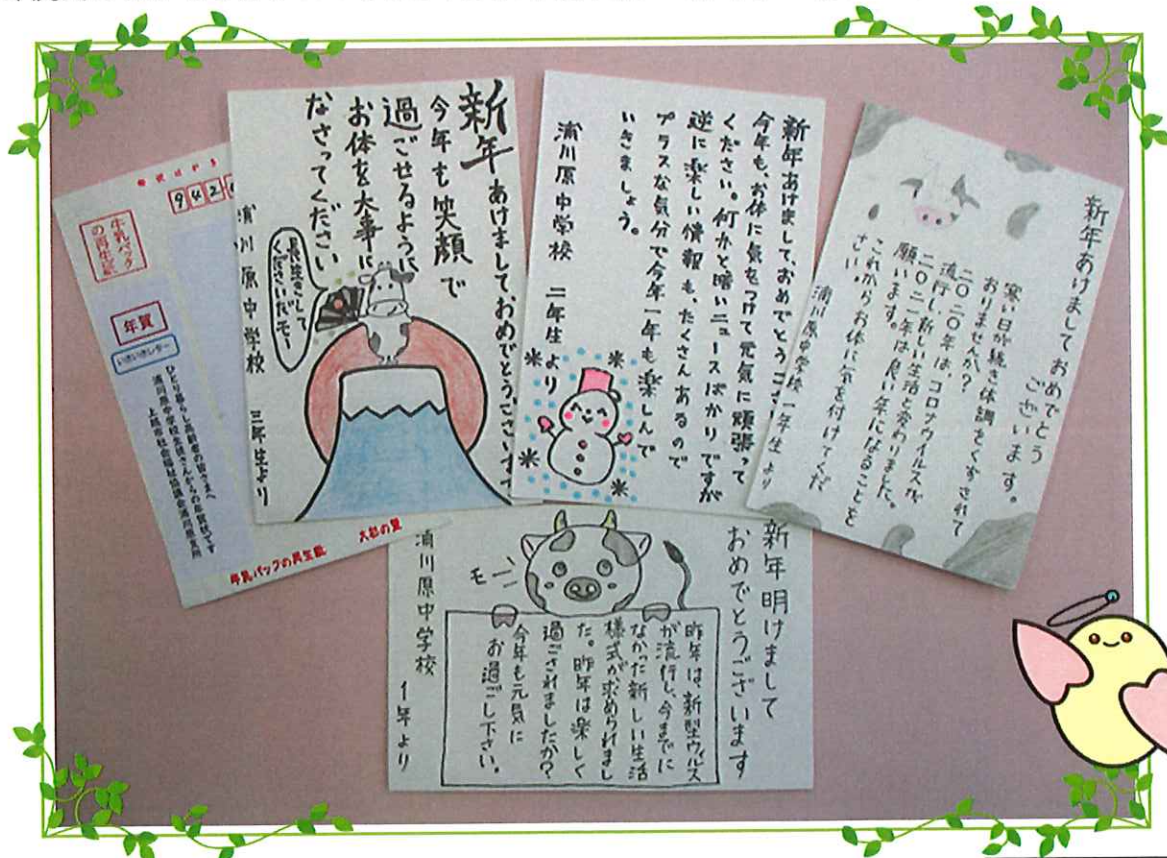 年賀はがき
942
牛乳パック
の再生紙
年賀
いきいきレター
ひとり暮らし高齢者の皆さまへ
浦川原中学校生徒さんからの年賀状です
上越市社会福祉協議会浦川原支所
牛乳パックの再生紙
新年あけましておめでとうございます
今年も笑顔で
過ごせるように
お体を大事に
なさってください
長生きして
くださいだモ〜
浦川原中学校 三年生より
新年あけまして、おめでとうござい
今年も、お体に気をつけて元気に頑張って
ください。何かと暗いニュースばかりですが
逆に楽しい情報も、たくさんあるので
プラスな気分で今年一年も楽しんで
いきましょう。
浦川原中学校 二年生より
新年あけましておめでとう
ございます。
寒い日が続き体調をくずされて
おりませんか?
二〇二〇年は、コロナウイルスが
流行し、新しい生活と変わりました。
二〇二一年は良い年になることを
願います。
これからお体に気を付けてくだ
さい。
浦川原中学校一年生より
新年明けまして
おめでとうございます
モー
昨年は、新型ウィルス
が流行し、今までに
なかった新しい生活
様式が求められまし
た。昨年は楽しく
過ごされましたか?
今年も元気に
お過ごし下さい。
浦川原中学校 1年より